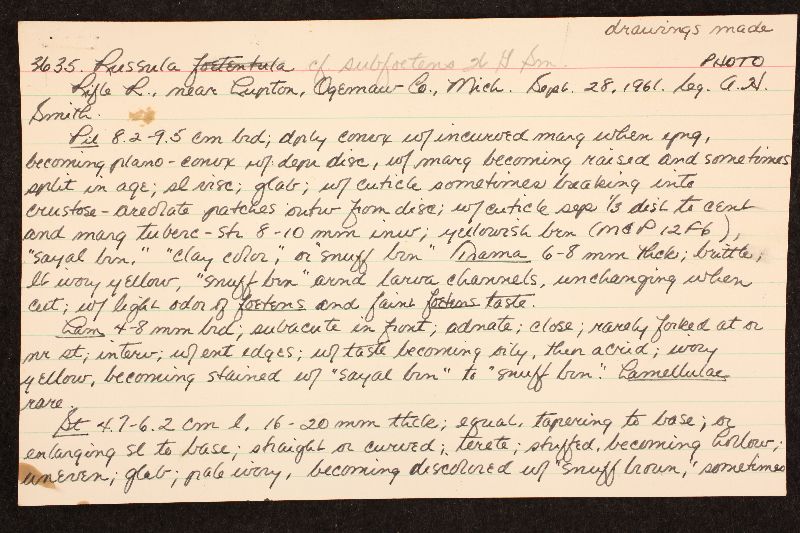 drawings made
3635. Russula foetentula cf subfoetens W G Sm. PHOTO
Rifle R., near Lupton, Ogemaw Co., Mich. Sept. 28, 1961. Leg. A.H.
Smith.
Pil 8.2-9.5 cm brd; dply convx w/ incurved marg when yng,
becoming plano-convx w/ depr disc, w/ marg becoming raised and sometimes
split in age; sl visc; glab; w/ cuticle sometimes breaking into
crustose-areolate patches outw from disc; w/ cuticle sep 1/3 dist to cent
and marg tuberc-str 8-10 mm inw; yellowish brn (M&P 12F6),
"sayal brn," "clay color," or "snuff brn" Trama 6-8 mm thick; brittle;
lt ivory yellow, "snuff brn" arnd larva channels, unchanging when
cut; w/ light odor of foetens and faint foetens taste.
Lam 4-8 mm brd; subacute in front; adnate; close; rarely forked at or
nr st; interv; w/ ent edges; w/ taste becoming oily, then acrid; ivory
yellow, becoming stained w/ "sayal brn" to "snuff brn". Lamellulae
rare.
St 4.7-6.2 cm l, 16-20 mm thick; equal, tapering to base; or
enlarging sl to base; straight or curved; terete; stuffed, becoming hollow;
uneven; glab; pale ivory, becoming discolored w/ "snuff brown," sometimes